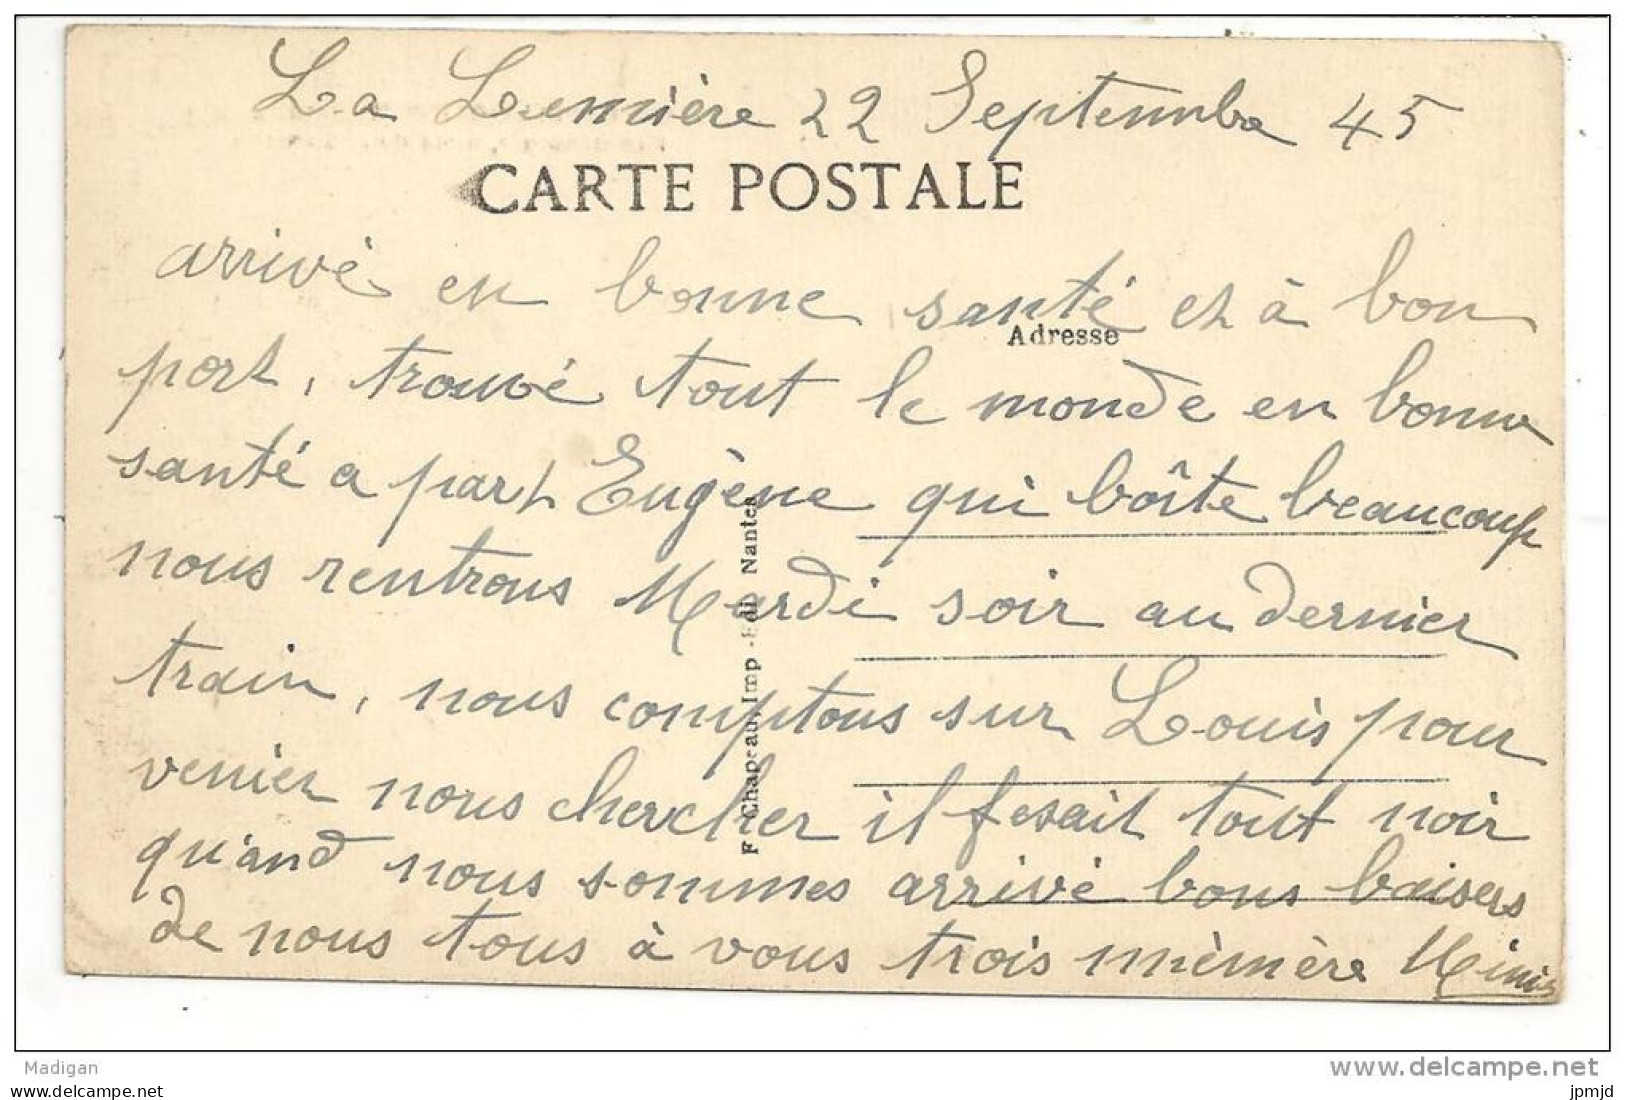 La Lumière 22 Septembre 45
CARTE POSTALE
arrivé en bonne santé et à bon
Adresse
port, trouvé tout le monde en bonne
santé a part Eugène qui boîte beaucoup
nous rentrons Mardi soir au dernier
train, nous comptons sur Louis pour
venier nous chercher il fesait tout noir
qu'and nous sommes arrivé bons baisers
de nous tous à vous trois mèmère Mimis
F. Chapeau, Imp.-Edit. Nantes
Madigan
www.delcampe.net
jpmjd